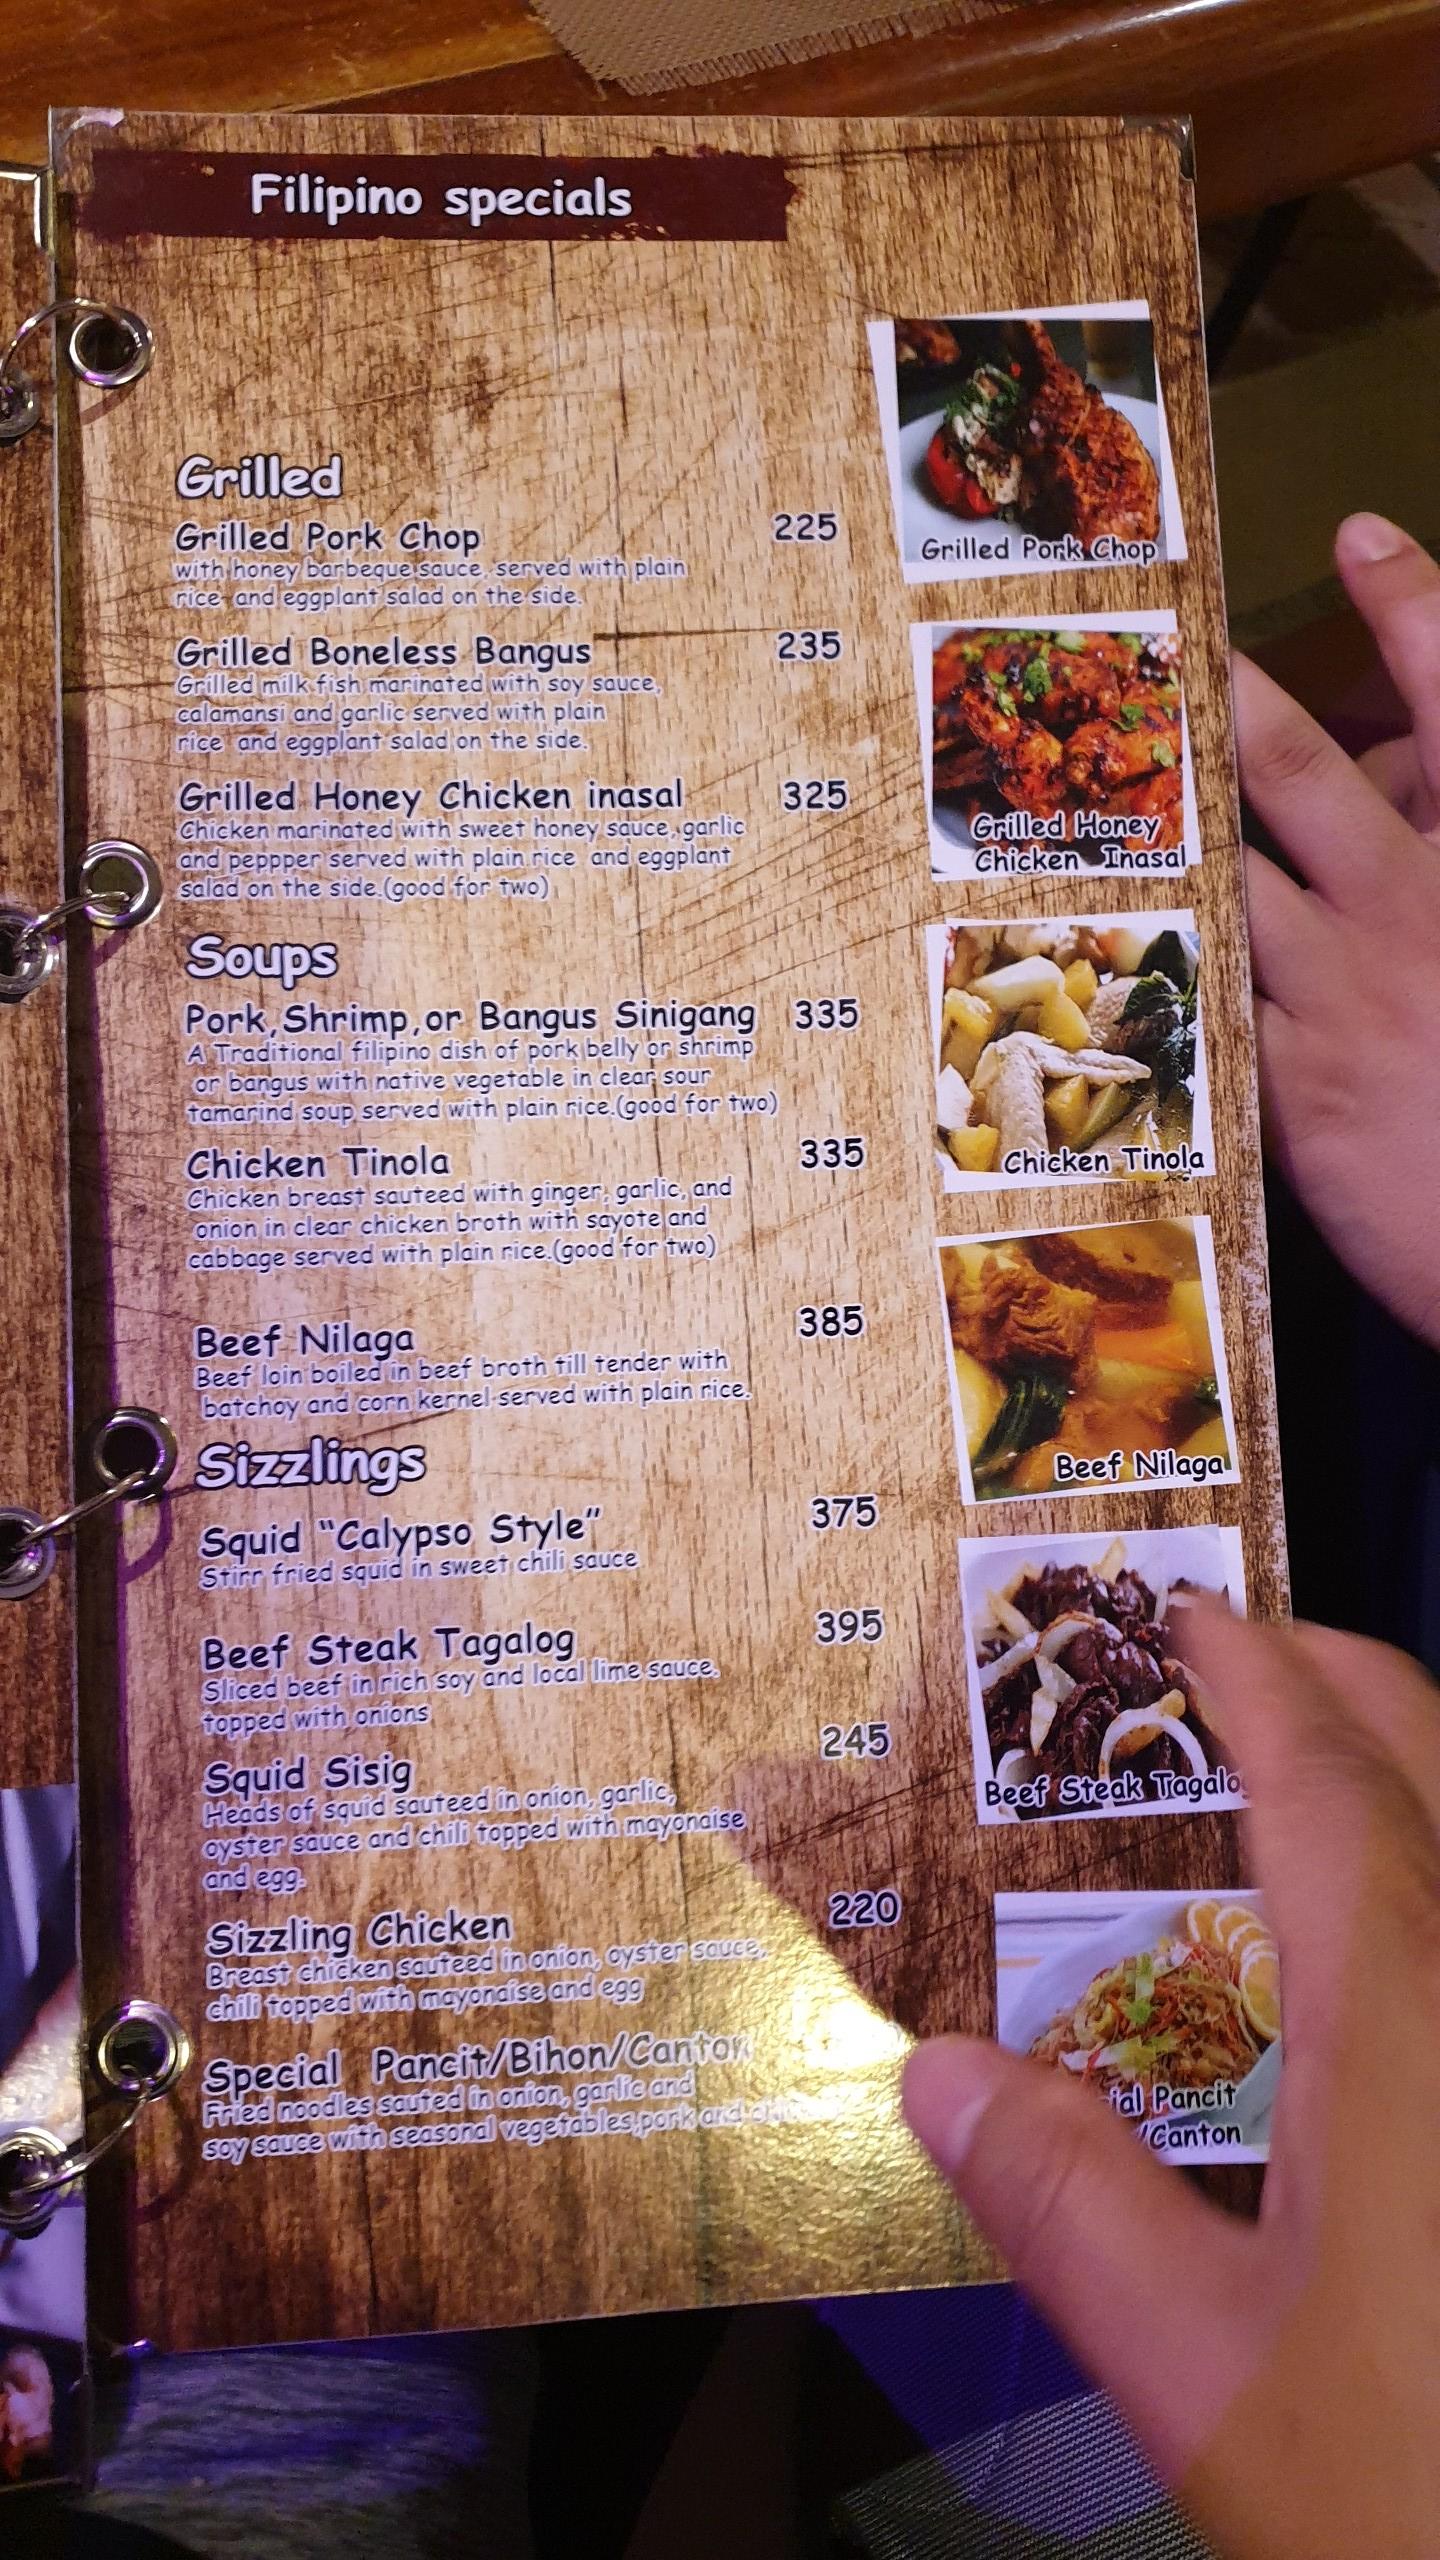 Filipino specials
Grilled
Grilled Pork Chop 225
with honey barbeque sauce, served with plain
rice and eggplant salad on the side.
Grilled Boneless Bangus 235
Grilled milk fish marinated with soy sauce,
calamansi and garlic served with plain
rice and eggplant salad on the side.
Grilled Honey Chicken inasal 325
Chicken marinated with sweet honey sauce, garlic
and peppper served with plain rice and eggplant
salad on the side.(good for two)
Soups
Pork,Shrimp,or Bangus Sinigang 335
A Traditional filipino dish of pork belly or shrimp
or bangus with native vegetable in clear sour
tamarind soup served with plain rice.(good for two)
Chicken Tinola 335
Chicken breast sauteed with ginger, garlic, and
onion in clear chicken broth with sayote and
cabbage served with plain rice.(good for two)
Beef Nilaga 385
Beef loin boiled in beef broth till tender with
batchoy and corn kernel served with plain rice.
Sizzlings
Squid "Calypso Style" 375
Stirr fried squid in sweet chili sauce
Beef Steak Tagalog 395
Sliced beef in rich soy and local lime sauce.
topped with onions
Squid Sisig 245
Heads of squid sauteed in onion, garlic,
oyster sauce and chili topped with mayonaise
and egg.
Sizzling Chicken 220
Breast chicken sauteed in onion, oyster sauce,
chili topped with mayonaise and egg
Special Pancit/Bihon/Canton
Fried noodles sauted in onion, garlic and
soy sauce with seasonal vegetables,pork and
Grilled Pork Chop
Grilled Honey
Chicken Inasal
Chicken Tinola
Beef Nilaga
Beef Steak Tagalo
ial Pancit
/Canton